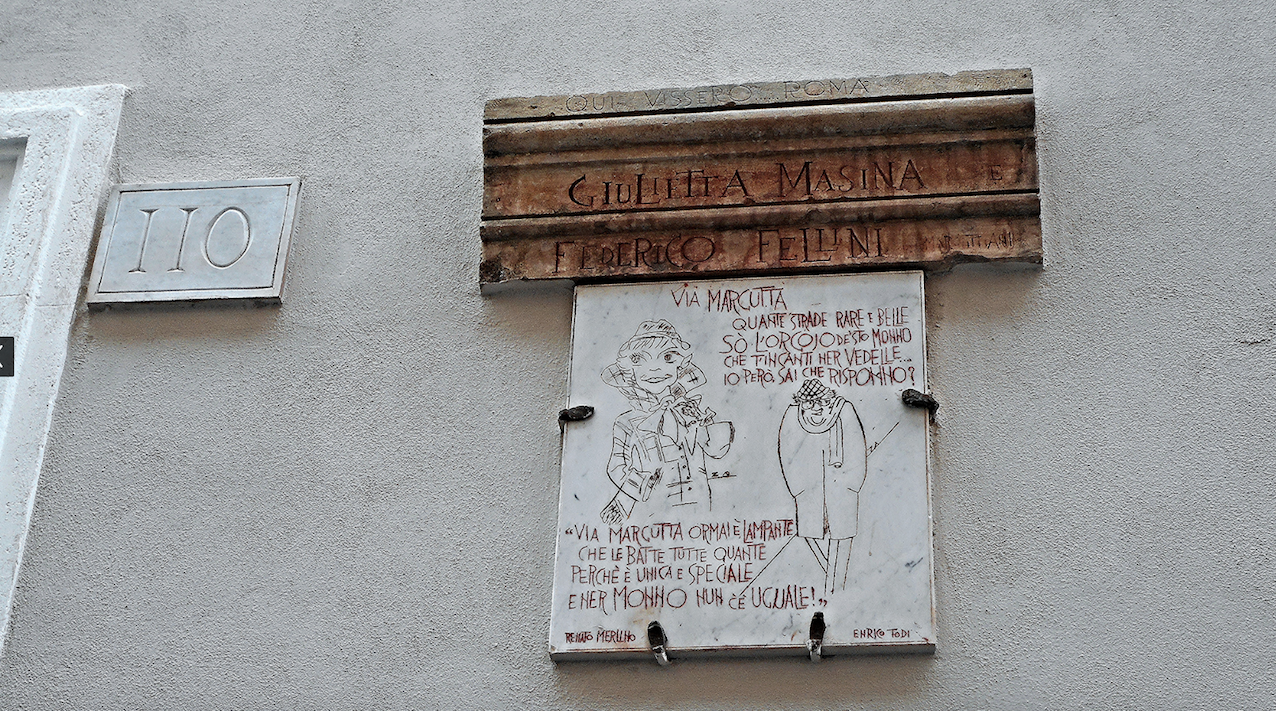 110
QUI VISSERO ROMA
GIULIETTA MASINA E
FEDERICO FELLINI
VIA MARGUTTA
QUANTE STRADE RARE E BELLE
SÒ L'ORGOJO DE STO MONNO
CHE T'INCANTI NER VEDELLE...
IO PERÒ, SAI CHE RISPONNO?
"VIA MARGUTTA ORMAI È LAMPANTE
CHE LE BATTE TUTTE QUANTE
PERCHÈ È UNICA E SPECIALE
E NER MONNO NUN C'È UGUALE!"
RENATO MERLINO
ENRICO TODI